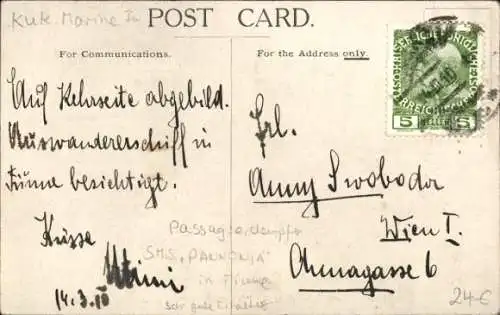 KuK. Marine
POST CARD.
For Communications.
For the Address only.
Auf Kehrseite abgebild.
Auswandererschiff in
Fiume besichtigt.
Küsse
Mimi
14.3.10
Frl.
Anny Swoboda
Wien I.
Annagasse 6
5 HELLER 5
Passagierdampfer
S.M.S. "PANNONIA"
in Fiume
sehr gute Erhaltung
24-€